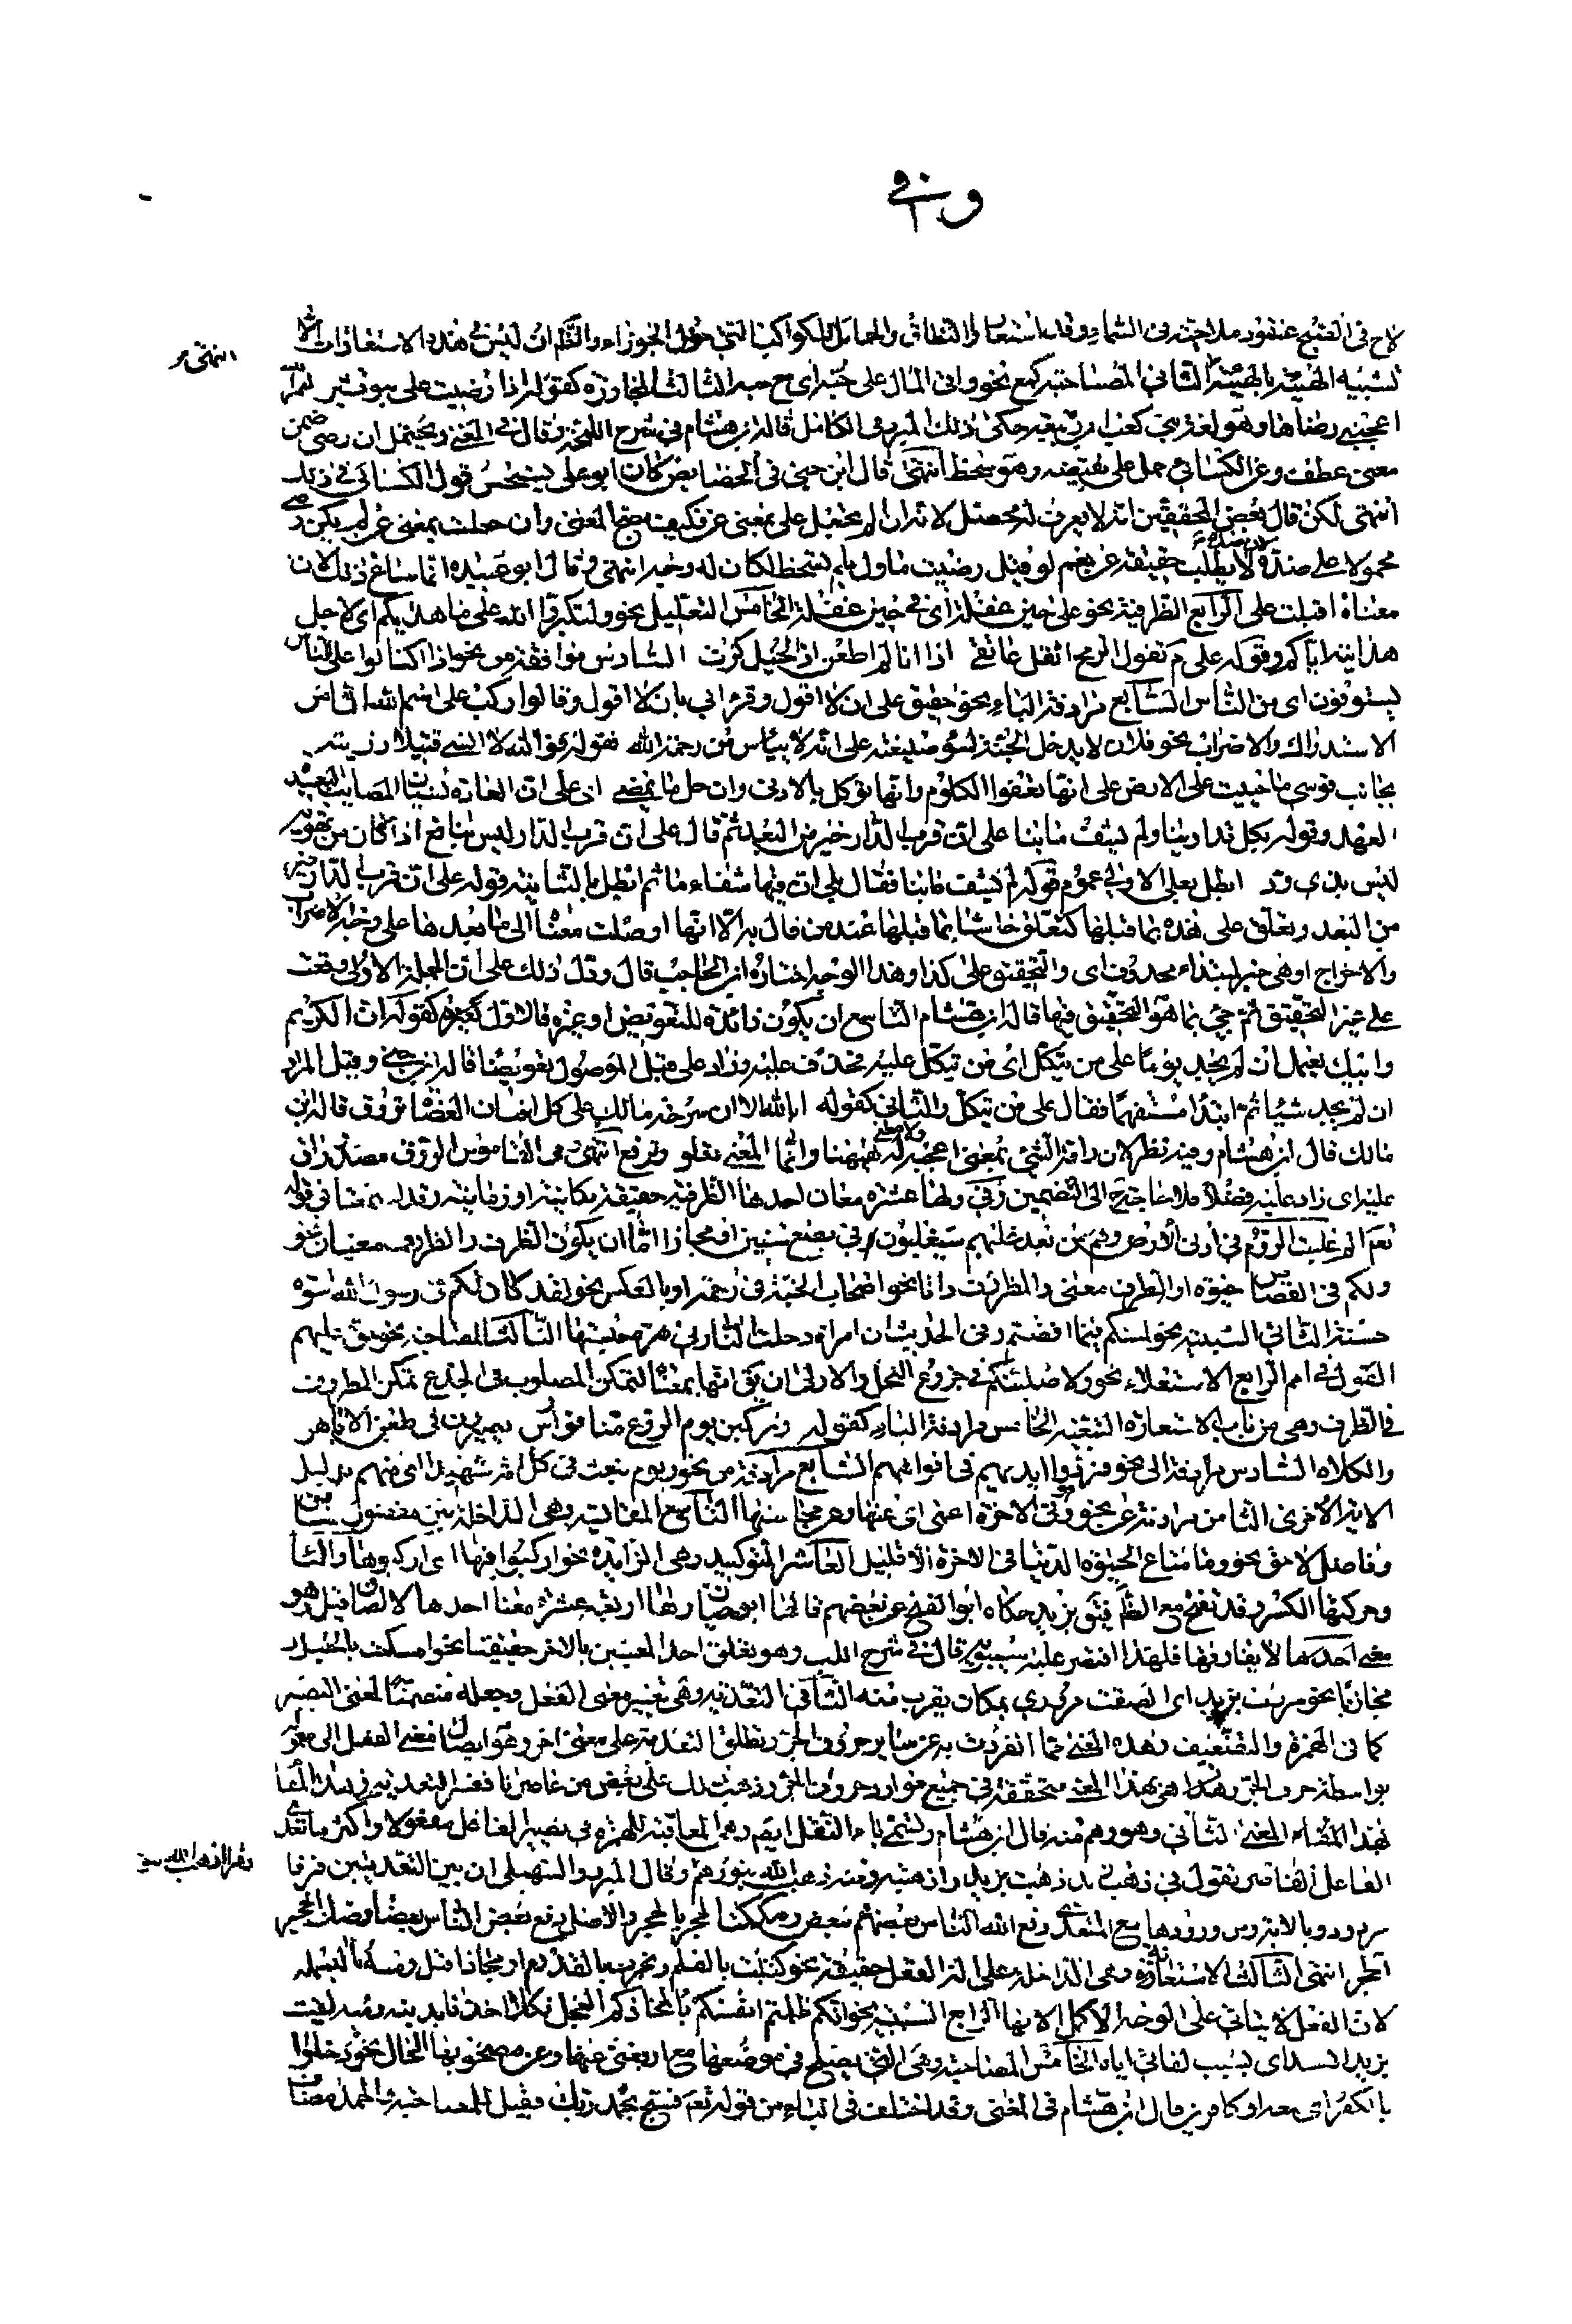 وفي
لاح في الصبح عنقود ملاحية في السماء وقد استعار النطاق والحمايل للكواكب التي حول الجوزاء والظاهر ان ليس في هذه الاستعارات الا
انتهى
تشبيه الهيئة بالهيئة الثاني المصاحبة كمع نحو واتى المال على حبه اي مع حبه الثالث المجاوزة كقوله اذا رضيت علي بنو قشير لعمر الله
اعجبني رضاها وهو لغة بني كعب ابن ربيعة حكى ذلك المبرد في الكامل قاله ابن هشام في شرح اللمحة وقال في المغني ويحتمل ان رضي ضمن
معنى عطف وعن الكسائي حمل على نقيضه وهو سخط انتهى قال ابن جني في الخصايص كان ابو علي يستحسن قول الكسائي في ذلك
انتهى لكن قال بعض المحققين انه لا يعرف له محصل لانه ان لم يجعل على بمعنى عن فكيف صح المعنى وان جعلت بمعنى عن لم يكن رضي
محمولا على ضده لا بطلب حقيقة عن نعم لو قيل رضيت ماول بلم تسخط لكان له وجه انتهى وقال ابو عبيدة انما ساغ ذلك لان
معناه اقبلت علي الرابع الظرفية نحو على حين غفلة اي في حين غفلة الخامس التعليل نحو ولتكبروا الله على ما هداكم اي لاجل
هدايته اياكم وقوله علام تقول الرمح اثقل عاتقي اذا انا لم اطعن اذا الخيل كرت السادس موافقة من نحو اذا اكتالوا على الناس
يستوفون اي من الناس السابع مرادفة الباء نحو حقيق على ان لا اقول وقرأ ابي بان لا اقول وقالوا اركب على اسم الله الثامن
الاستدراك والاضراب نحو فلان لا يدخل الجنة لسوء صنيعه على انه لا ييأس من رحمة الله وقوله فوالله لا انسى قتيلا رزيته
بجانب قوسي ما حييت على الارض على انها تعفو الكلوم وانما نوكل بالادنى وان جل ما يمضي اي على ان العادة نسيان المصايب البعيدة
العهد وقوله بكل تداوينا ولم يشف ما بنا على ان قرب الدار خير من البعد ثم قال على ان قرب الدار ليس بنافع اذا كان من تهواه
ليس بذي ود ابطل بعلى الاولى عموم قوله لم يشف ما بنا فقال بلى ان فيها شفاء ما ثم ابطل بالثانية قوله على ان قرب الدار خير
من البعد وتعلق على هذه بما قبلها كتعلق حاشا بما قبلها عند من قال به الا انها اوصلت معناه الى ما بعدها على وجه الاضراب
والاخراج او هي خبر لمبتداء محذوف اي والتحقيق على كذا وهذا الوجه اختاره ابن الحاجب قال ودل ذلك على ان الجملة الاولى وقعت
على غير التحقيق ثم جيء بما هو التحقيق فيها قاله ابن هشام التاسع ان يكون زائدة للتعويض او غيره فالاول كقوله ان الكريم
وابيك يعتمل ان لم يجد يوما على من يتكل اي من يتكل عليه فحذف عليه وزاد على قبل الموصول تعويضا قاله ابن جني وقيل المراد
ان لم يجد شيئا ثم ابتدا مستفهما فقال على من يتكل والثاني كقوله ابا الله الا ان سرحة مالك على كل افنان العضاه تروق قاله ابن
مالك قال ابن هشام وفيه نظر لان راقه الشيء بمعنى اعجبه ولا معنى له ههنا وانما المعنى تعلو وترتفع انتهى
عليه اي زاد عليه فضلا فلا حاجة الى التضمين وفي ولها عشرة معان احدها الظرفية حقيقة مكانية او زمانية وقد اجتمعتا في قوله
تعم الم غلبت الروم في ادنى الارض وهم من بعد غلبهم سيغلبون في بضع سنين او مجازا اما ان يكون الظرف والمظروف معنيان نحو
ولكم في القصاص حيوة او الظرف معنى والمظروف ذاتا نحو اصحاب الجنة في رحمة او بالعكس نحو لقد كان لكم في رسول الله اسوة
حسنة الثاني السببية نحو لمسكم فيما افضتم وفي الحديث ان امراة دخلت النار في هرة حبستها الثالث المصاحبة نحو حق عليهم
القول في امم الرابع الاستعلاء نحو ولاصلبنكم في جذوع النخل والاولى ان يق انها بمعناها لتمكن المصلوب في الجذع تمكن المظروف
في الظرف وهي من باب الاستعارة التبعية الخامس مرادفة الباء كقوله ويركب يوم الروع منا فوارس بصيرون في طعن الاباهر
والكلاه السادس مرادفة الى نحو فردوا ايديهم في افواههم السابع مرادفة من نحو ويوم نبعث في كل امة شهيدا اي منهم بدليل
الاية الاخرى الثامن مرادفة عن نحو فهو في الاخرة اعمى اي عنها وعن محاسنها التاسع المقايسة وهي الداخلة بين مفضول سابق
وفاضل لاحق نحو وما متاع الحيوة الدنيا في الاخرة الا قليل العاشر التوكيد وهي الزايدة نحو اركبوا فيها اي اركبوها والباء
وحركتها الكسر وقد تفتح مع الظاهر فيق بزيد حكاه ابو الفتح عن بعضهم قالها ابو حيان ولها اربعة عشر معنا احدها الالصاق قيل وهو
معنى لا يفارقها فلهذا اقتصر عليه سيبويه قال في شرح اللب وهو تعلق احد المعنيين بالاخر حقيقتا نحو امسكت بالحبل او
مجازا نحو مررت بزيد اي الصقت مروري بمكان يقرب منه الثاني التعدية وهي تغيير معنى الفعل وجعله متضمنا لمعنى التصيير
كما في الهمزة والتضعيف وهذه المعنى مما انفردت به عن ساير حروف الجر وتطلق التعدية على معنى اخر وهو ايصال معنى الفعل الى معموله
بواسطة حرف الجر وهي بهذا المعنى متحققة في جميع موارد حروف الجر
بهذا المعنى الثاني وهو وهم منه قال ابن هشام وتسمى باء النقل ايضا وهي المعاقبة للهمزة في تصيير الفاعل مفعولا واكثر ما تعدي
الفاعل القاصر تقول في ذهب زيد ذهبت بزيد واذهبته ومنه ذهب الله بنورهم وقال المبرد والسهيلي ان بين التعديتين فرقا
وقرئ اذهب الله
مردود بالاية ومن ورودها مع المتعدي دفع الله الناس بعضهم ببعض وصككت الحجر بالحجر والاصل دفع بعض الناس بعضا وصك الحجر
الحجر انتهى الثالث الاستعانة وهي الداخلة على الة الفعل حقيقة نحو كتبت بالقلم ونجرت بالقدوم او مجازا قيل ومنه باء البسملة
لان الفعل لا يتاتى على الوجه الاكمل الا بها الرابع السببية نحو انكم ظلمتم انفسكم باتخاذكم العجل فكلا اخذنا بذنبه ومنه لقيت
بزيد الاسد اي بسبب لقائي اياه الخامس المصاحبة وهي التي يصلح في موضعها مع او يغني عنها وعن مصحوبها الحال نحو دخلوا
بالكفر اي معه او كافرين قال ابن هشام في المغني وقد اختلف في الباء من قوله تعم فسبح بحمد ربك فقيل للمصاحبة والحمد مضاف